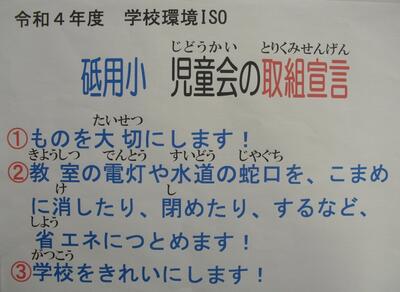 令和４年度　学校環境ISO
じどうかい　とりくみせんげん
砥用小　児童会の取組宣言
たいせつ
①ものを大切にします！
きょうしつ　でんとう　すいどう　じゃぐち
②教室の電灯や水道の蛇口を、こまめ
け　し
に消したり、閉めたり、するなど、
しょう
省エネにつとめます！
がつこう
③学校をきれいにします！